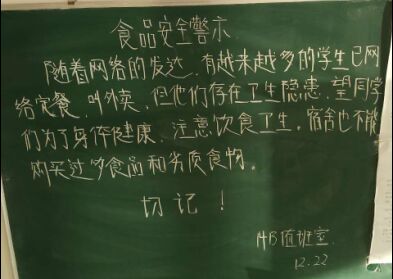 食品安全警示
随着网络的发达,有越来越多的学生已网
络定餐,叫外卖,但他们存在卫生隐患,望同学
们为了身体健康,注意饮食卫生,宿舍也不能
购买过多食品和劣质食物。
切记!
14B值班室
12.22